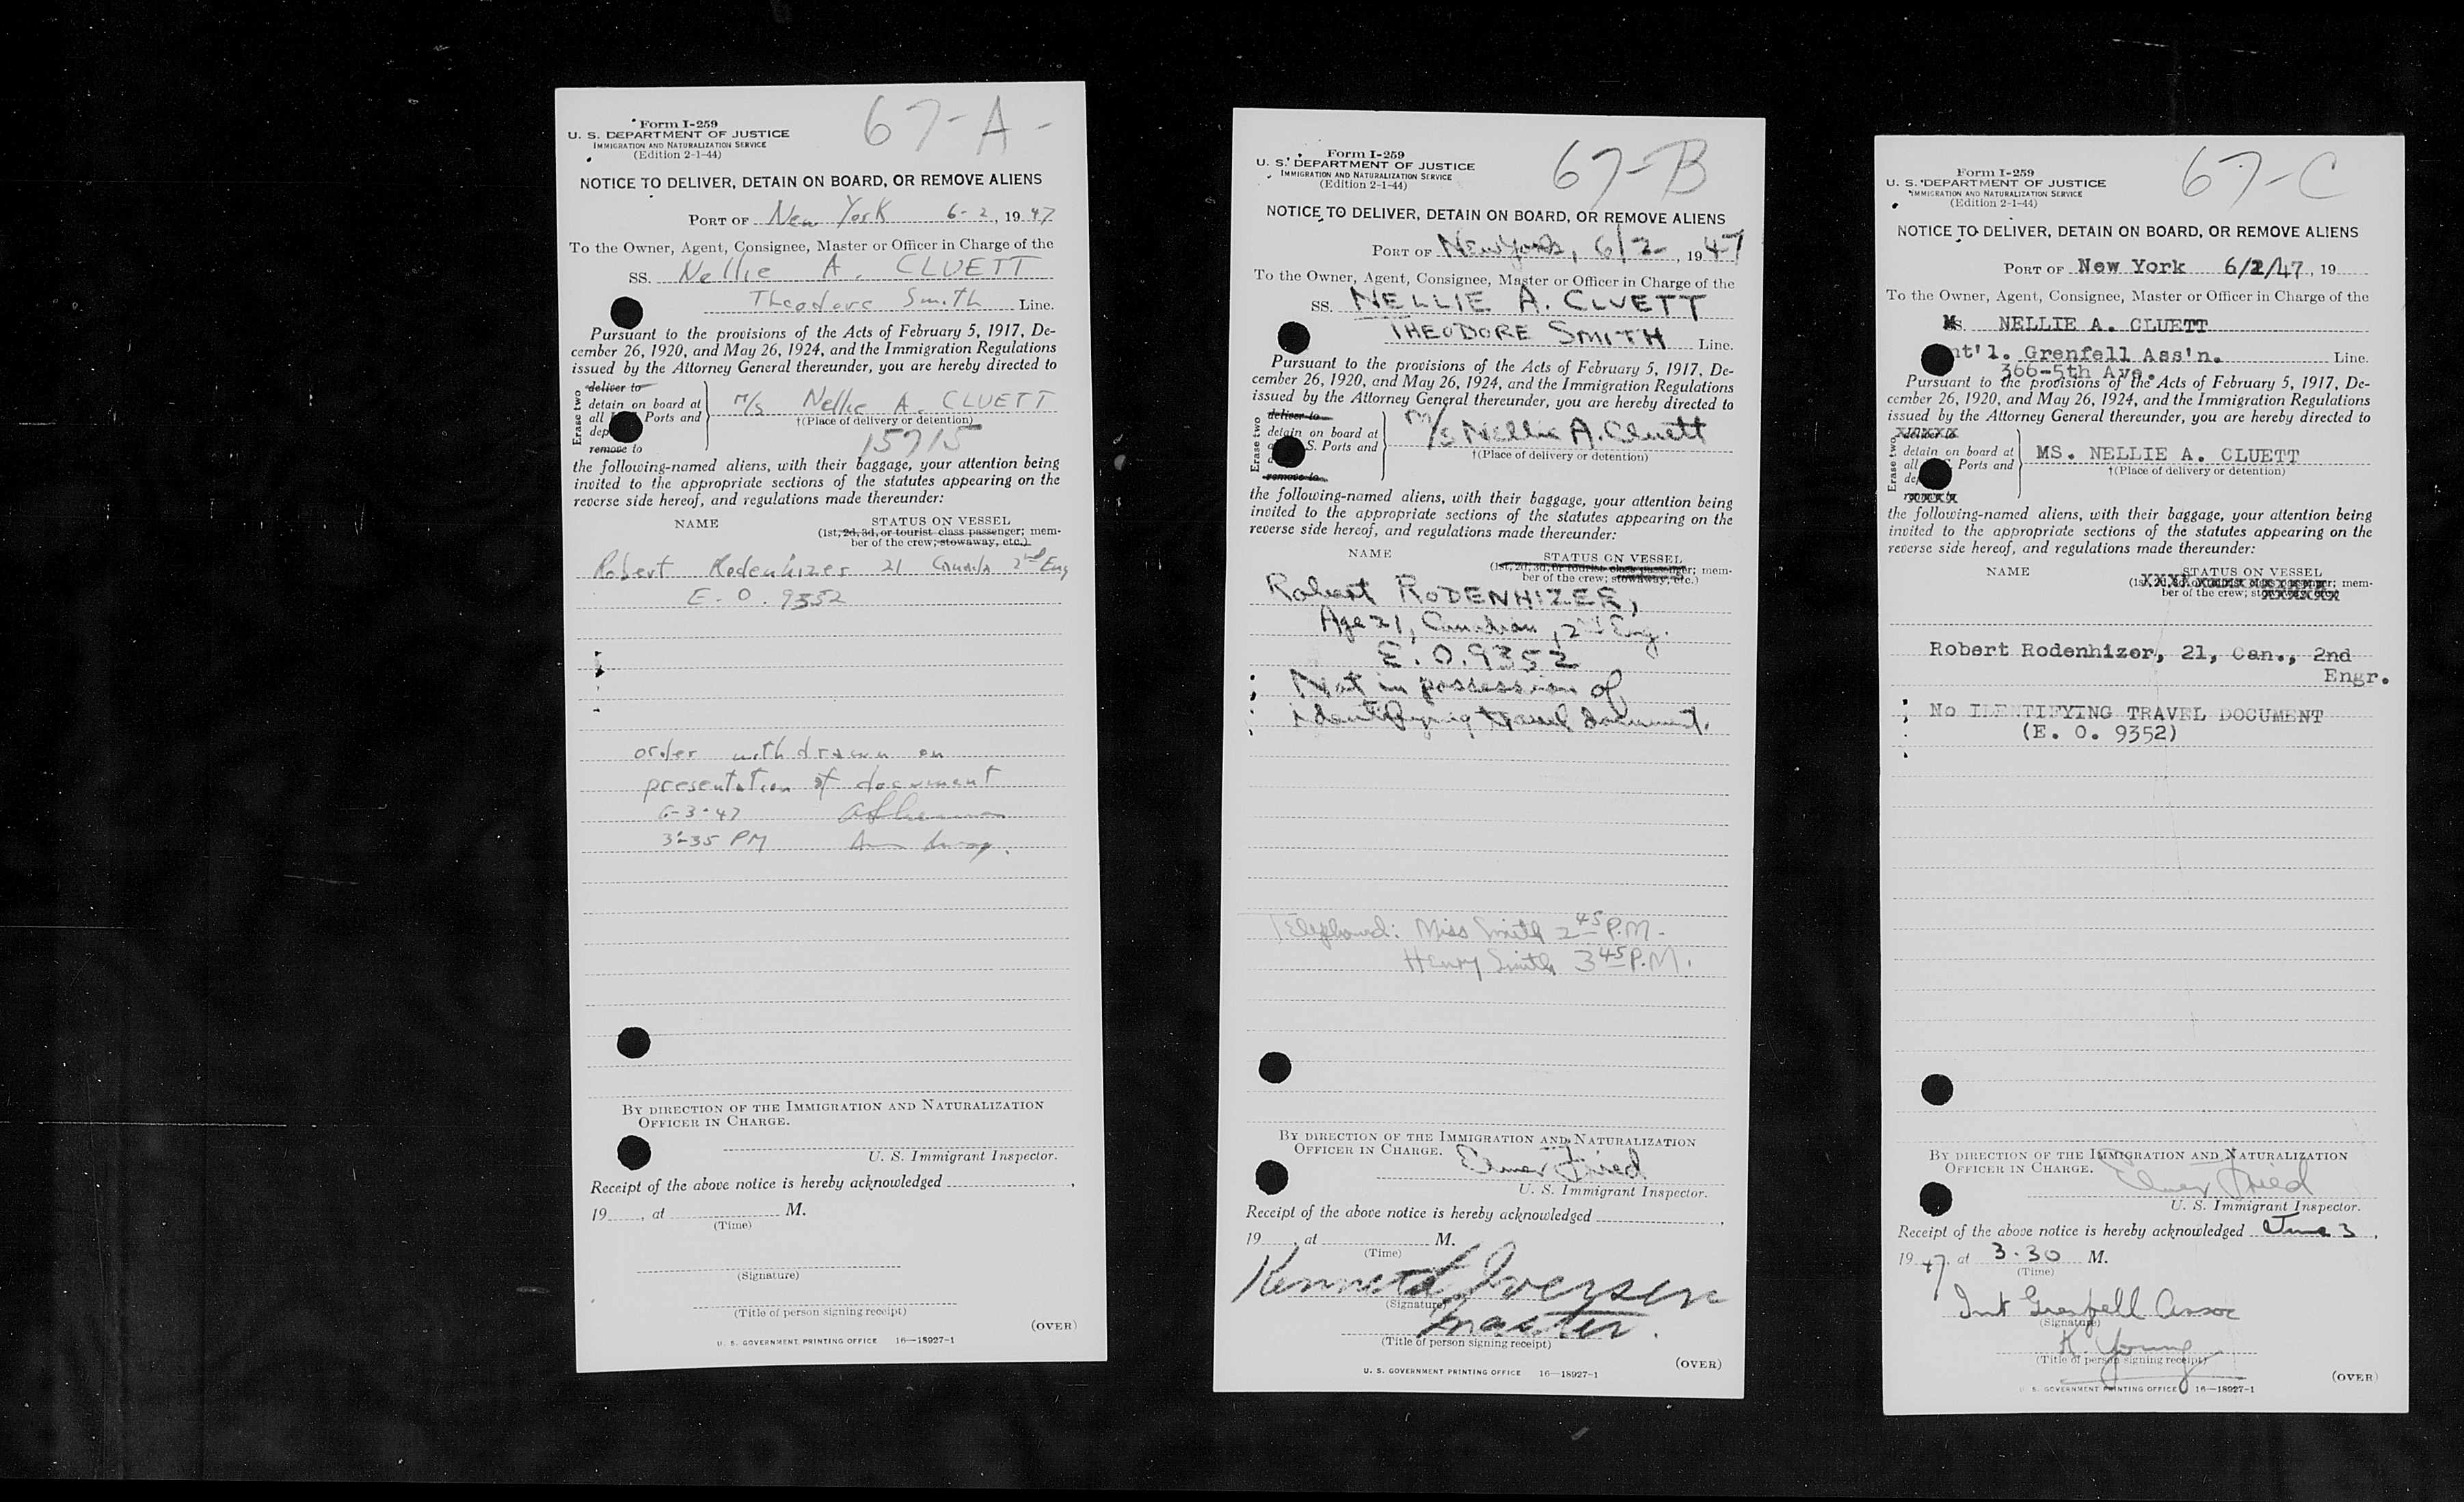 67-A-
Form I-259
U. S. DEPARTMENT OF JUSTICE
IMMIGRATION AND NATURALIZATION SERVICE
(Edition 2-1-44)
NOTICE TO DELIVER, DETAIN ON BOARD, OR REMOVE ALIENS
PORT OF New York 6-2, 1947
To the Owner, Agent, Consignee, Master or Officer in Charge of the
SS. Nellie A. CLUETT
Theodore Smith Line.
Pursuant to the provisions of the Acts of February 5, 1917, De-
cember 26, 1920, and May 26, 1924, and the Immigration Regulations
issued by the Attorney General thereunder, you are hereby directed to
Erase two
deliver to
detain on board at
all Ports and
dep
remove to
M/S Nellie A. CLUETT
†(Place of delivery or detention)
15715
the following-named aliens, with their baggage, your attention being
invited to the appropriate sections of the statutes appearing on the
reverse side hereof, and regulations made thereunder:
NAME STATUS ON VESSEL
(1st, 2d, 3d, or tourist class passenger; mem-
ber of the crew; stowaway, etc.)
Robert Rodenhizer 21 Canada 2nd Eng
E. O. 9352
order withdrawn on
presentation of document
6-3-47
3:35 PM
BY DIRECTION OF THE IMMIGRATION AND NATURALIZATION
OFFICER IN CHARGE.
U. S. Immigrant Inspector.
Receipt of the above notice is hereby acknowledged
19, at M.
(Time)
(Signature)
(Title of person signing receipt)
(OVER)
U. S. GOVERNMENT PRINTING OFFICE 16—18927-1
67-B
Form I-259
U. S. DEPARTMENT OF JUSTICE
IMMIGRATION AND NATURALIZATION SERVICE
(Edition 2-1-44)
NOTICE TO DELIVER, DETAIN ON BOARD, OR REMOVE ALIENS
PORT OF New York, 6/2, 1947
To the Owner, Agent, Consignee, Master or Officer in Charge of the
SS. NELLIE A. CLUETT
THEODORE SMITH Line.
Pursuant to the provisions of the Acts of February 5, 1917, De-
cember 26, 1920, and May 26, 1924, and the Immigration Regulations
issued by the Attorney General thereunder, you are hereby directed to
Erase two
deliver to
detain on board at
S. Ports and
remove to
M/S Nellie A. Cluett
†(Place of delivery or detention)
the following-named aliens, with their baggage, your attention being
invited to the appropriate sections of the statutes appearing on the
reverse side hereof, and regulations made thereunder:
NAME STATUS ON VESSEL
(1st, 2d, 3d, or tourist class passenger; mem-
ber of the crew; stowaway, etc.)
Robert RODENHIZER,
Age 21, Canadian, 2nd Eng.
E. O. 9352
Not in possession of
identifying travel document.
Telephoned: Miss Smith 2 45 P.M.
Henry Smith 3 45 P.M.
BY DIRECTION OF THE IMMIGRATION AND NATURALIZATION
OFFICER IN CHARGE.
Elmer Fried
U. S. Immigrant Inspector.
Receipt of the above notice is hereby acknowledged
19, at M.
(Time)
Kenneth Iversen
(Signature)
master.
(Title of person signing receipt)
(OVER)
U. S. GOVERNMENT PRINTING OFFICE 16—18927-1
67-C
Form I-259
U. S. DEPARTMENT OF JUSTICE
IMMIGRATION AND NATURALIZATION SERVICE
(Edition 2-1-44)
NOTICE TO DELIVER, DETAIN ON BOARD, OR REMOVE ALIENS
PORT OF New York 6/2/47, 19
To the Owner, Agent, Consignee, Master or Officer in Charge of the
MS. NELLIE A. CLUETT
nt'l. Grenfell Ass'n. Line.
366-5th Ave.
Pursuant to the provisions of the Acts of February 5, 1917, De-
cember 26, 1920, and May 26, 1924, and the Immigration Regulations
issued by the Attorney General thereunder, you are hereby directed to
Erase two
deliver to
detain on board at
all Ports and
de
remove to
MS. NELLIE A. CLUETT
†(Place of delivery or detention)
the following-named aliens, with their baggage, your attention being
invited to the appropriate sections of the statutes appearing on the
reverse side hereof, and regulations made thereunder:
NAME STATUS ON VESSEL
(1st, 2d, 3d, or tourist class passenger; mem-
ber of the crew; stowaway, etc.)
Robert Rodenhizer, 21, Can., 2nd
Engr.
No IDENTIFYING TRAVEL DOCUMENT
(E. O. 9352)
BY DIRECTION OF THE IMMIGRATION AND NATURALIZATION
OFFICER IN CHARGE.
Elmer Fried
U. S. Immigrant Inspector.
Receipt of the above notice is hereby acknowledged June 3,
1947, at 3.30 M.
(Time)
Int Grenfell Assoc
(Signature)
K. Young
(Title of person signing receipt)
(OVER)
U. S. GOVERNMENT PRINTING OFFICE 16—18927-1